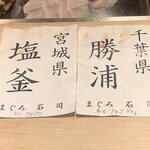 千葉県
勝浦
まぐろ 石司
宮城県
塩釜
まぐろ 石司